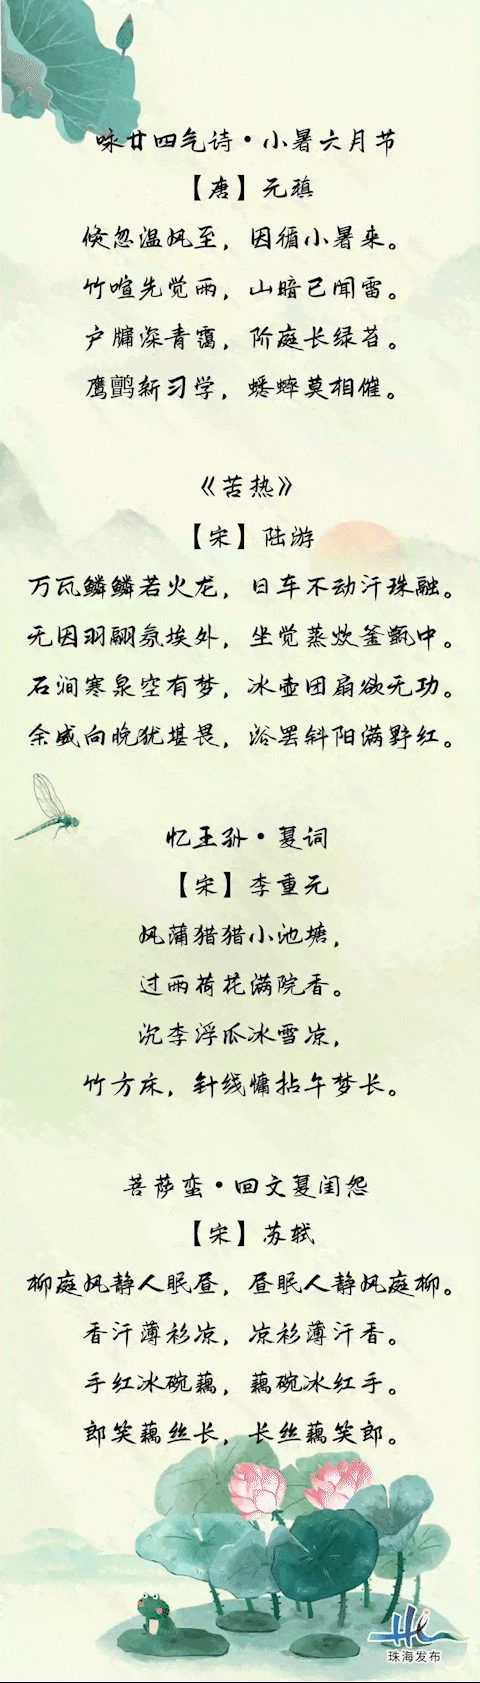 咏廿四气诗·小暑六月节
【唐】元稹
倏忽温风至，因循小暑来。
竹喧先觉雨，山暗已闻雷。
户牖深青霭，阶庭长绿苔。
鹰鹯新习学，蟋蟀莫相催。
《苦热》
【宋】陆游
万瓦鳞鳞若火龙，日车不动汗珠融。
无因羽翮氛埃外，坐觉蒸炊釜甑中。
石涧寒泉空有梦，冰壶团扇欲无功。
余威向晚犹堪畏，浴罢斜阳满野红。
忆王孙·夏词
【宋】李重元
风蒲猎猎小池塘，
过雨荷花满院香。
沉李浮瓜冰雪凉，
竹方床，针线慵拈午梦长。
菩萨蛮·回文夏闺怨
【宋】苏轼
柳庭风静人眠昼，昼眠人静风庭柳。
香汗薄衫凉，凉衫薄汗香。
手红冰碗藕，藕碗冰红手。
郎笑藕丝长，长丝藕笑郎。
珠海发布